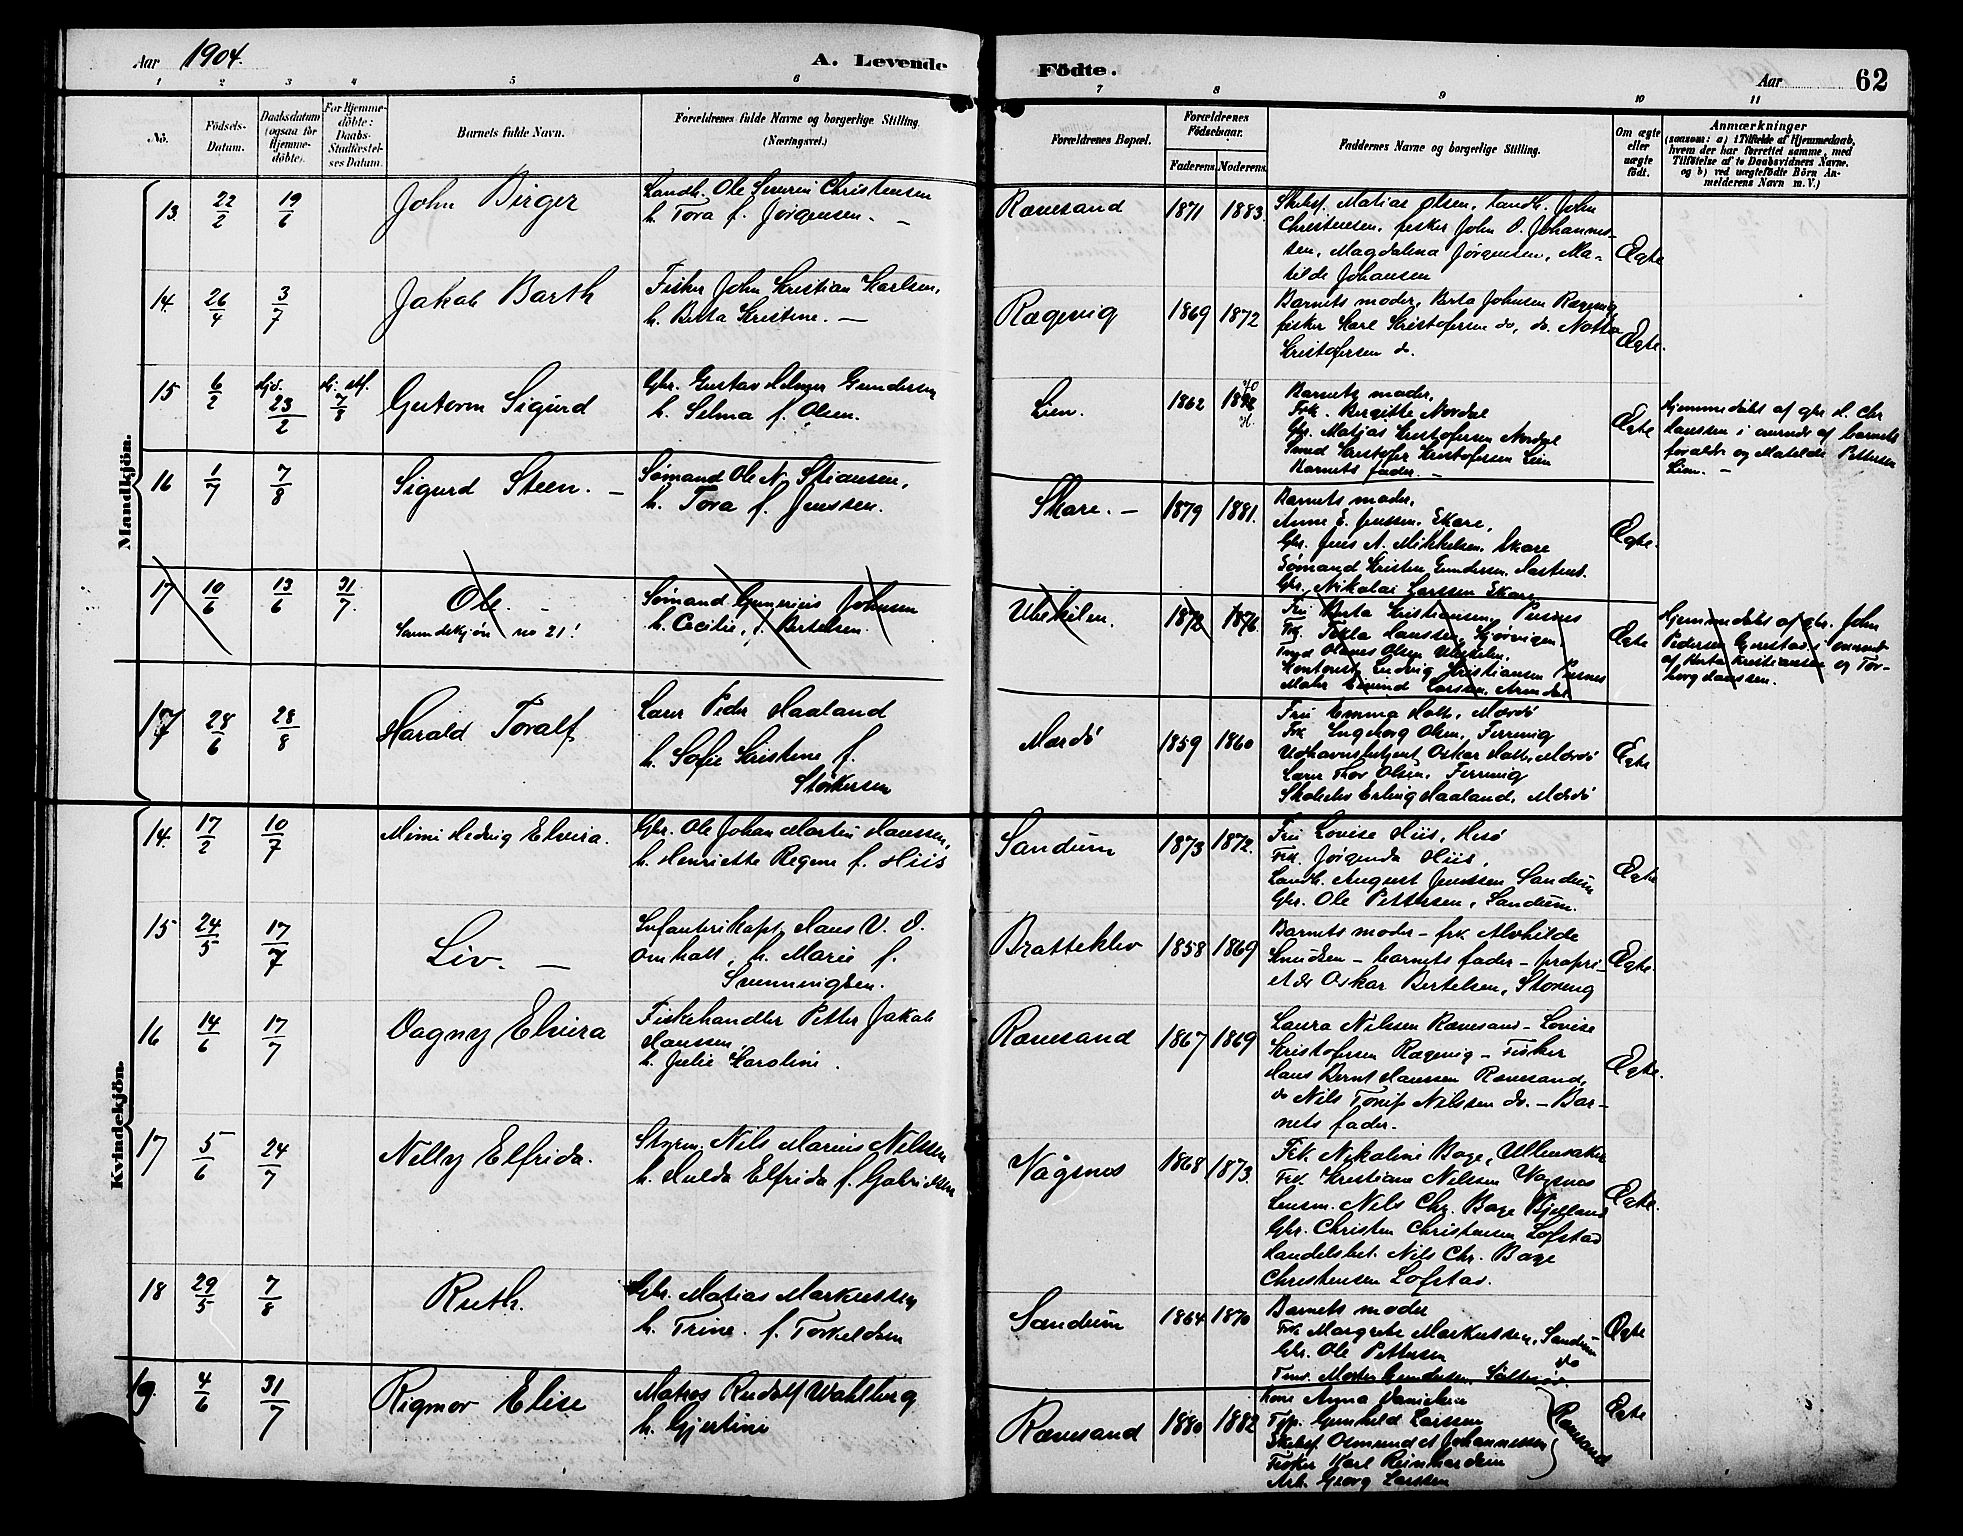 Aar 1904.
A. Levende Födte.
Aar
62
1 2 3 4 5 6 7 8 9 10 11
No.
Födsels-Datum.
Daabsdatum (ogsaa for Hjemme-döbte).
For Hjemme-döbte: Daabs-Stadfæstelses Datum.
Barnets fulde Navn.
Forældrenes fulde Navne og borgerlige Stilling.
(Næringsvei.)
Forældrenes Bopæl.
Forældrenes Födselsaar.
Faderens. Moderens.
Faddernes Navne og borgerlige Stilling.
Om ægte eller uægte födt.
Anmærkninger
(saasom: a) i Tilfælde af Hjemmedaab,
hvem der har forrettet samme, med
Tilföielse af to Daabsvidners Navne.
og b) ved uægtefödte Börn An-
melderens Navn m. V.)
Mandkjön.
13. 22/2 19/6 John Birger
Landh. Ole Severin Christensen
h. Tora f. Jørgensen. —
Rævesand 1871 1883.
Skibsf. Matias Olsen, Landh. John
Christensen, fisker John O. Johannes-
sen, Magdalena Jørgensen, Ma-
tilde Johansen
Ægte
14. 26/4 3/7 Jakob Barth
Fisker John Kristian Karlsen,
h. Berta Kristine. —
Rægevig 1869 1872
Barnets moder, Berta Johnsen Rægevig
fisker Karl Kristofersen do, do.
Kristofersen do.
Ægte.
15 6/2 Hjd. 23/2 st. 7/8 Gutorm Sigurd
Gbr. Gustav Helmer Gundersen
h. Selma f. Olsen.
Lien. 1862 70
Barnets moder,
Frk. Bergitte Nordal
Gbr. Matias Kristofersen Nordal
Smed Kristofer Kristofersen Lien
Barnets fader. —
Ægte
Hjemmedøbt af gbr H. Chr
Hanssen i overvær af barnets
forældr og Matilde Pettersen
Lien. —
16 1/7 7/8 Sigurd Steen. —
Sømand Ole N. Stiansen,
h. Tora f. Jenssen.
Skare. — 1879 1881.
Barnets moder,
Anne E. Jenssen, Skare,
Gbr. Jens A. Mikkelsen, Skare
Sømand Kristen Gundersen,
Gbr. Nikolai Larssen Skare
Ægte.
17 10/6 13/6 31/7. Ole. —
no 21!
Sømand Johnsen
h. Cecilie, f. Bertelsen.
Ubekilen. 1872 1876.
Fru Berta Kristiansen, Pusnes
Frk. Tekla Hanssen,
Olsen Ubekilen,
Kontorist Ludvig Kristiansen Pusnes
Maler Larssen, Arendal
Ægte
Hjemmedøbt af gbr. John
Pedersen Gjerestad i overvær
af Berta Kristiansen og Tor-
borg Hanssen.
17 28/6 28/8 Harald Toralf
Lærer Peder Haaland
h. Sofie Kristene f.
Størkersen
Merdö 1859 1860
Fru Emma Holt, Merdö
Frk Ingeborg Olsen, Færvig
Oskar Holt, Merdö
Lærer Thor Olsen, Færvig
Erling Haaland, Merdö
Ægte
Kvindekjön.
14. 17/2 10/7 Mimi Hedvig Elvira.
Gbr. Ole Johan Martin Hanssen,
h. Henriette Regine f. Hiis
Sandum 1873 1872.
Fru Lovise Hiis, Hisö
Frk. Jørgenda Hiis,
Landh. August Jenssen Sandum
Gbr. Ole Pettersen, Sandum.
Ægte
15 24/5 17/7 Liv. —
Infanterikapt. Hans V. O.
Omholt, h. Marie f.
Svenningsen.
Bratteklev 1858 1869
Barnets moder — frk Alvhilde
Knudsen — barnets fader — propri-
etær Oskar Bertelsen, Storeng
Ægte.
16 14/6 17/7 Dagny Elvira
Fiskehandler Petter Jakob
Hanssen,
h. Julie Karoline.
Rævesand 1867 1869
Laura Nilsen Rævesand — Lovise
Kristofersen Rægevig — Fisker
Hans Bernt Hanssen Rævesand,
do Nils Tonis Nilssen do. — Bar-
nets fader.
Ægte.
17 5/6 24/7 Nelly Elfrida.
Styrm. Nils Marius Nilssen
h. Hulda Elfrida f. Gabrielsen
Vågsnes 1868 1873.
Frk. Nikoline Bage, Ullensaker
Frk. Kristiane Nilssen Vagsnes
Lensm. Nils Chr. Bage Bjelland
Gbr. Christen Christensen Lofstad
Handelsbet. Nils Chr. Bage
Christensen Lofstad.
Ægte.
18 29/5 7/8 Ruth.
Gbr. Matias Markussen
h. Trine. f. Torkeldsen
Sandum 1864 1870
Barnets moder
Frk Margrete Markussen, Sandum
Gbr. Ole Pettersen do
Gundersen,
Ægte
19. 4/6 31/7 Rigmor Elise
Matros Rudolf Wahlberg
h. Gjertine
Rævesand 1880 1882
Kone Anna Danielsen
Tjp. Gunhild Larssen
Skibsf. Osmund A Johannessen
Fisker Karl Reinhardsen
Arb. Georg Larssen
Rævesand
Ægte